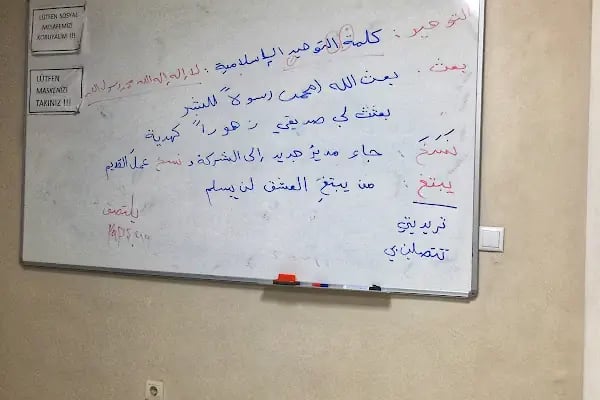 LÜTFEN SOSYAL
MESAFEMİZİ
KORUYALIM !!!
LÜTFEN
MASKENİZİ
TAKINIZ !!!
التوحيد : كلمة التوحيد الإسلامية : لا إله إلا الله محمد رسول الله
بعث : بعث الله محمد رسولاً للبشر
بعثت لي صديقتي زهوراً كهدية
نَسَخَ : جاء مديرٌ جديد إلى الشركة و نسخ عمل القديم
يبتغ : من يبتغِ العشق لن يسلم
يلتصق
تريديني
تتصلين بي